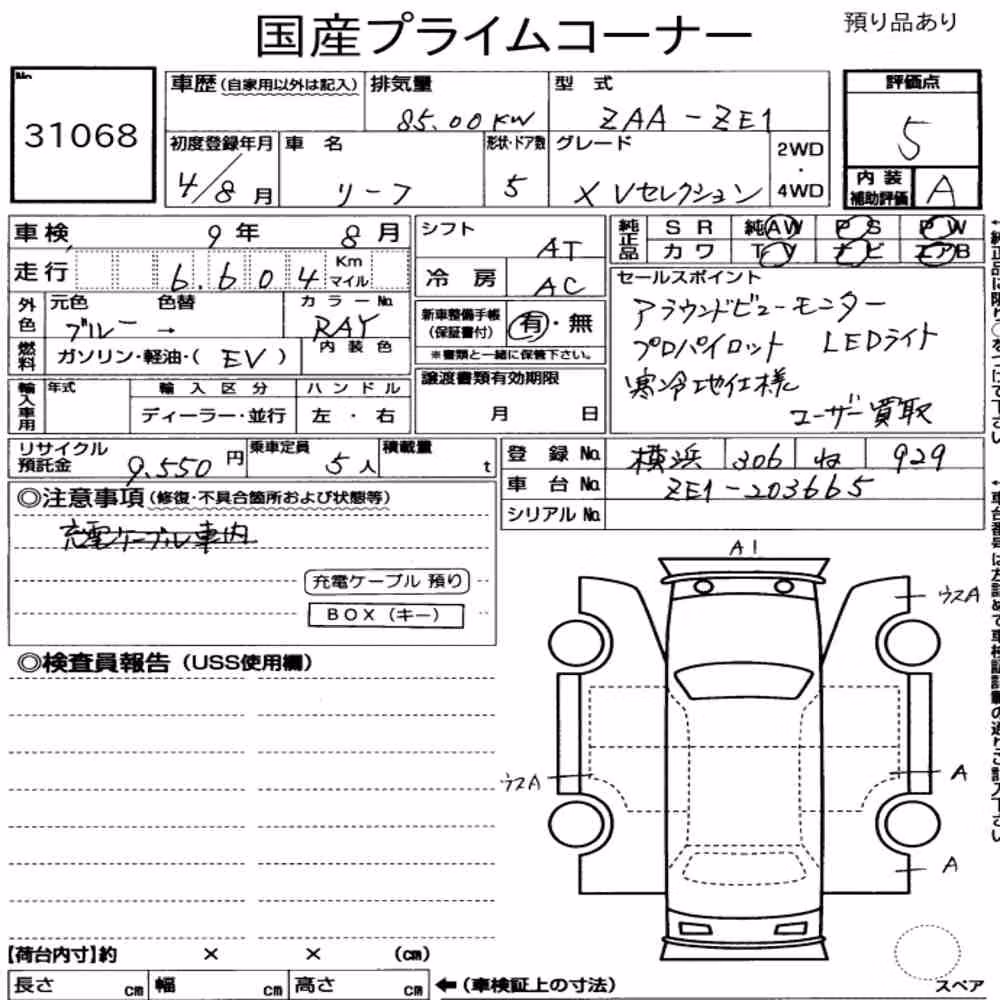 国産プライムコーナー
預り品あり
No.
31068
車歴(自家用以外は記入)
排気量
85.00KW
型 式
ZAA-ZE1
評価点
5
内装補助評価
A
初度登録年月
4/8月
車 名
リーフ
形状・ドア数
5
グレード
X Vセレクション
2WD
・
4WD
車検 9年 8月
走行 6.604 Km マイル
外色
元色 色替
ブルー →
カラーNo.
RAY
燃料
ガソリン・軽油・( EV )
内装色
輸入車用
年式
輸入区分
ディーラー・並行
ハンドル
左 ・ 右
シフト
AT
冷房
AC
新車整備手帳
(保証書付)
有・無
※書類と一緒に保管下さい。
譲渡書類有効期限
月 日
純正品
SR 純AW PS PW
カワ TV ナビ エアB
セールスポイント
アラウンドビューモニター
プロパイロット LEDライト
寒冷地仕様
ユーザー買取
リサイクル預託金
9.550円
乗車定員
5人
積載量
t
登録No. 横浜 306 ね 929
車台No. ZE1-203665
シリアルNo.
◎注意事項(修復・不具合箇所および状態等)
充電ケーブル車内
充電ケーブル 預り
BOX(キー)
◎検査員報告(USS使用欄)
A1
ウスA
ウスA
A
A
スペア
【荷台内寸】約 × × (cm)
長さ cm 幅 cm 高さ cm
←(車検証上の寸法)